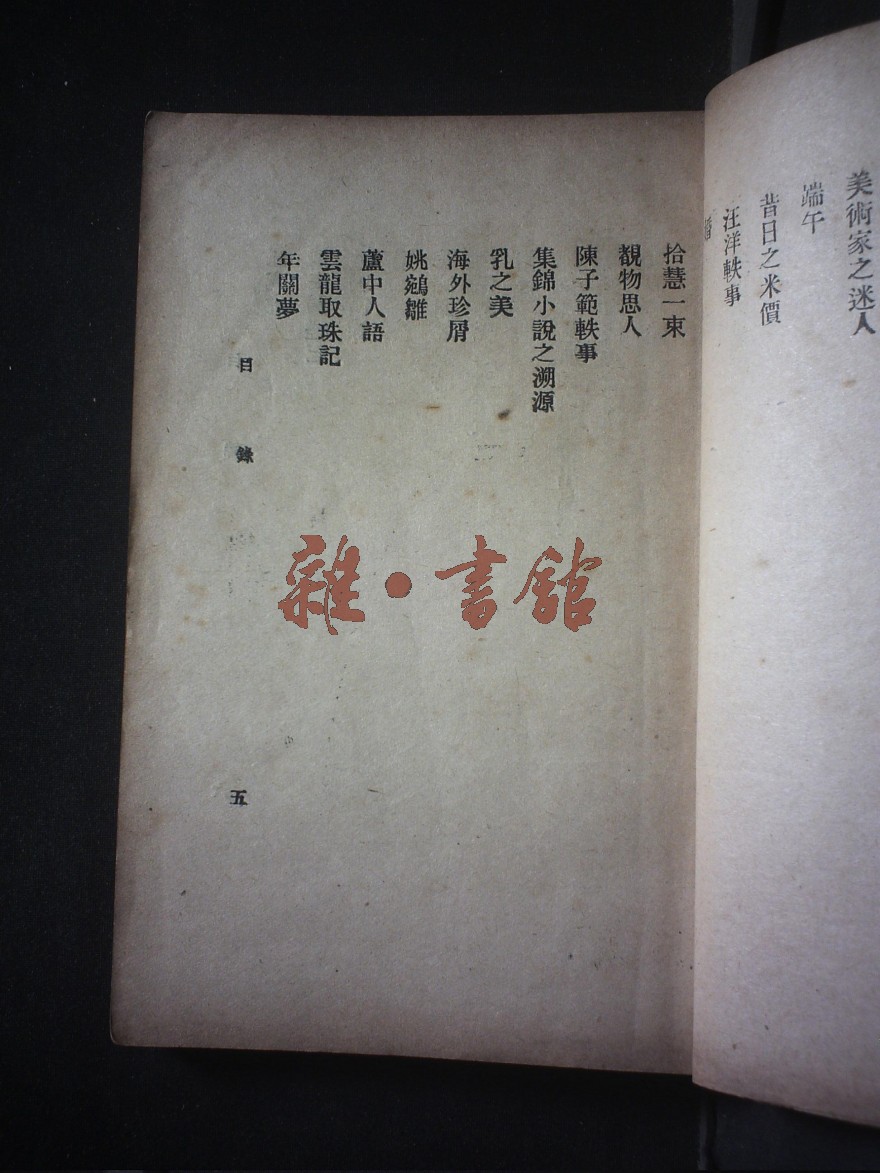 美術家之迷人
端午
昔日之米價
汪洋軼事
拾慧一束
覩物思人
陳子範軼事
集錦小說之溯源
乳之美
海外珍屑
姚鵷雛
蘆中人語
雲龍取珠記
年關夢
目錄
五
雜·書館